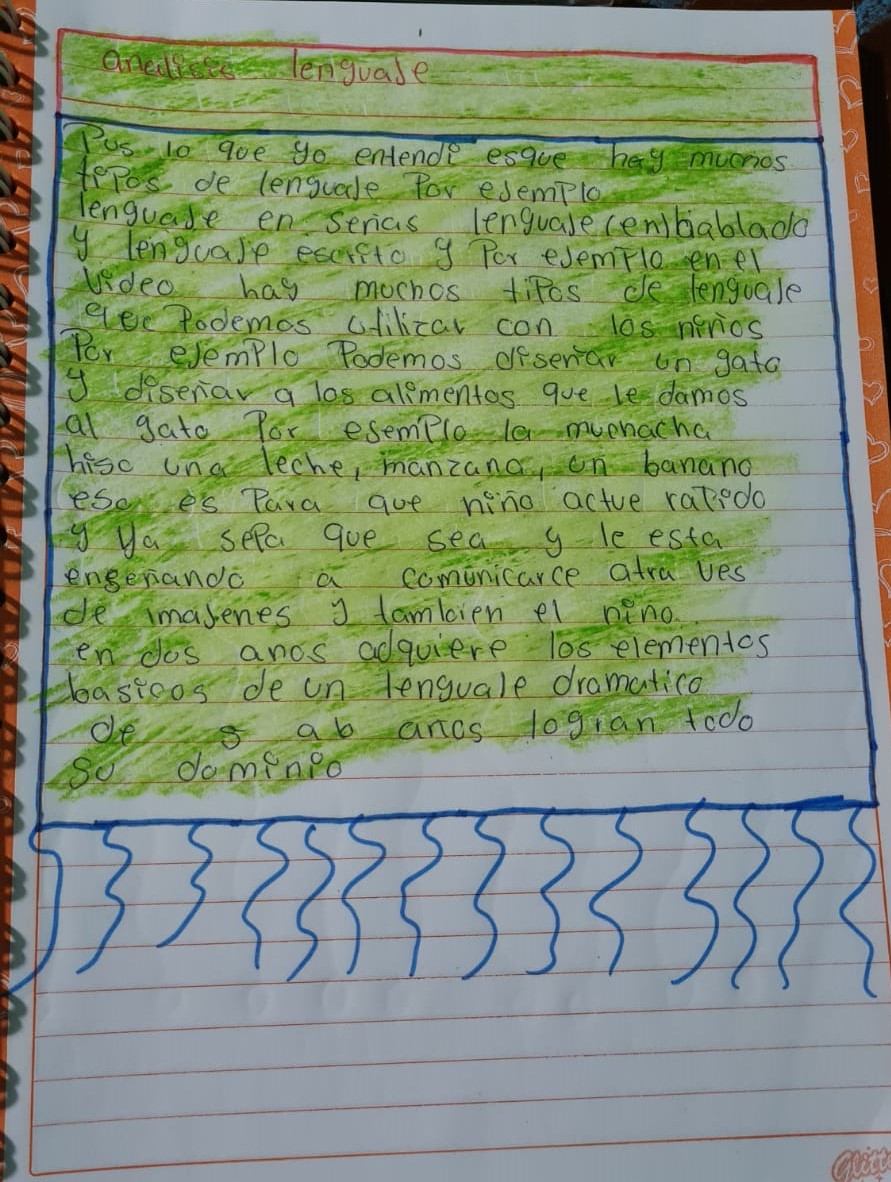 analisis lenguaJe
Pus lo que yo entendi esque hay muchos
tipos de lenguaJe Por eJemPlo
lenguaJe en señas lenguaJe (en) hablado
y lenguaJe escrito y Por eJemPlo en el
video hay muchos tiPos de lenguaJe
que Podemos utilizar con los niños
Por eJemPlo Podemos diseñar un gato
y diseñar a los alimentos que le damos
al gato Por esemPlo la muchacha
hiso una leche, manzana, un banano
eso es Para que niño actue raPido
y ya sePa que sea y le esta
engeñando a comunicarce atra ves
de imaJenes y tambien el niño
en dos anos adquiere los elementos
basicos de un lenguaJe dramatico
de 5 anos logran todo
su dominio
Glitt